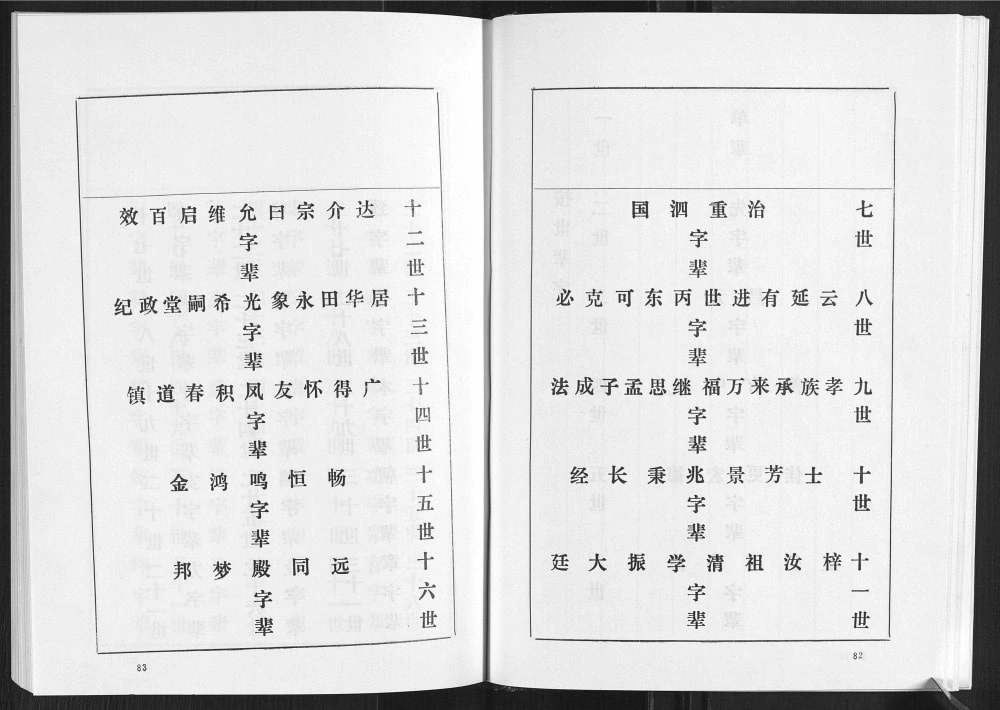 七世 治 重 泗 国 字辈
八世 云 延 有 进 世 丙 东 可 克 必 字辈
九世 孝 族 承 来 万 福 继 思 孟 子 成 法 字辈
十世 士 芳 景 兆 秉 长 经 字辈
十一世 梓 汝 祖 清 学 振 大 廷 字辈
82
十二世 达 介 宗 曰 允 维 启 百 效 字辈
十三世 居 华 田 永 象 光 希 嗣 堂 政 纪 字辈
十四世 广 得 怀 友 凤 积 春 道 镇 字辈
十五世 畅 恒 鸣 鸿 金 字辈
十六世 远 同 殿 梦 邦 字辈
83